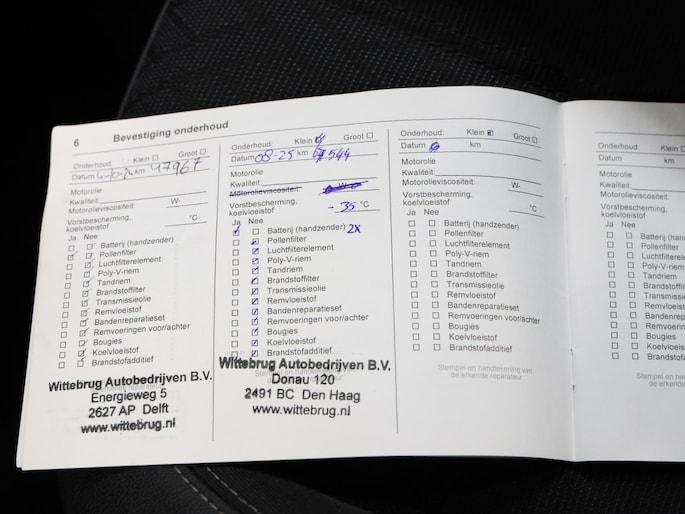 6 Bevestiging onderhoud
Onderhoud: Klein Groot
Datum km 47967
Motorolie
Kwaliteit:
Motorolieviscositeit: W-
Vorstbescherming, °C
koelvloeistof
Ja Nee
Batterij (handzender)
Pollenfilter
Luchtfilterelement
Poly-V-riem
Tandriem
Brandstoffilter
Transmissieolie
Remvloeistof
Bandenreparatieset
Remvoeringen voor/achter
Bougies
Koelvloeistof
Brandstofadditief
Wittebrug Autobedrijven B.V.
Energieweg 5
2627 AP Delft
www.wittebrug.nl
Onderhoud: Klein Groot
Datum 08-25 km
Motorolie
Kwaliteit:
Motorolieviscositeit: W-
Vorstbescherming,
koelvloeistof - 35 °C
Ja Nee
Batterij (handzender) 2X
Pollenfilter
Luchtfilterelement
Poly-V-riem
Tandriem
Brandstoffilter
Transmissieolie
Remvloeistof
Bandenreparatieset
Remvoeringen voor/achter
Bougies
Koelvloeistof
Brandstofadditief
Wittebrug Autobedrijven B.V.
Donau 120
2491 BC Den Haag
www.wittebrug.nl
Onderhoud: Klein Groot
Datum km
Motorolie
Kwaliteit:
Motorolieviscositeit: W-
Vorstbescherming,
koelvloeistof °C
Ja Nee
Batterij (handzender)
Pollenfilter
Luchtfilterelement
Poly-V-riem
Tandriem
Brandstoffilter
Transmissieolie
Remvloeistof
Bandenreparatieset
Remvoeringen voor/achter
Bougies
Koelvloeistof
Brandstofadditief
Stempel en handtekening van
de erkende reparateur
Onderhoud:
Datum
Motorolie
Kwaliteit:
Motorolieviscositeit
Vorstbescherming,
koelvloeistof
Ja Nee